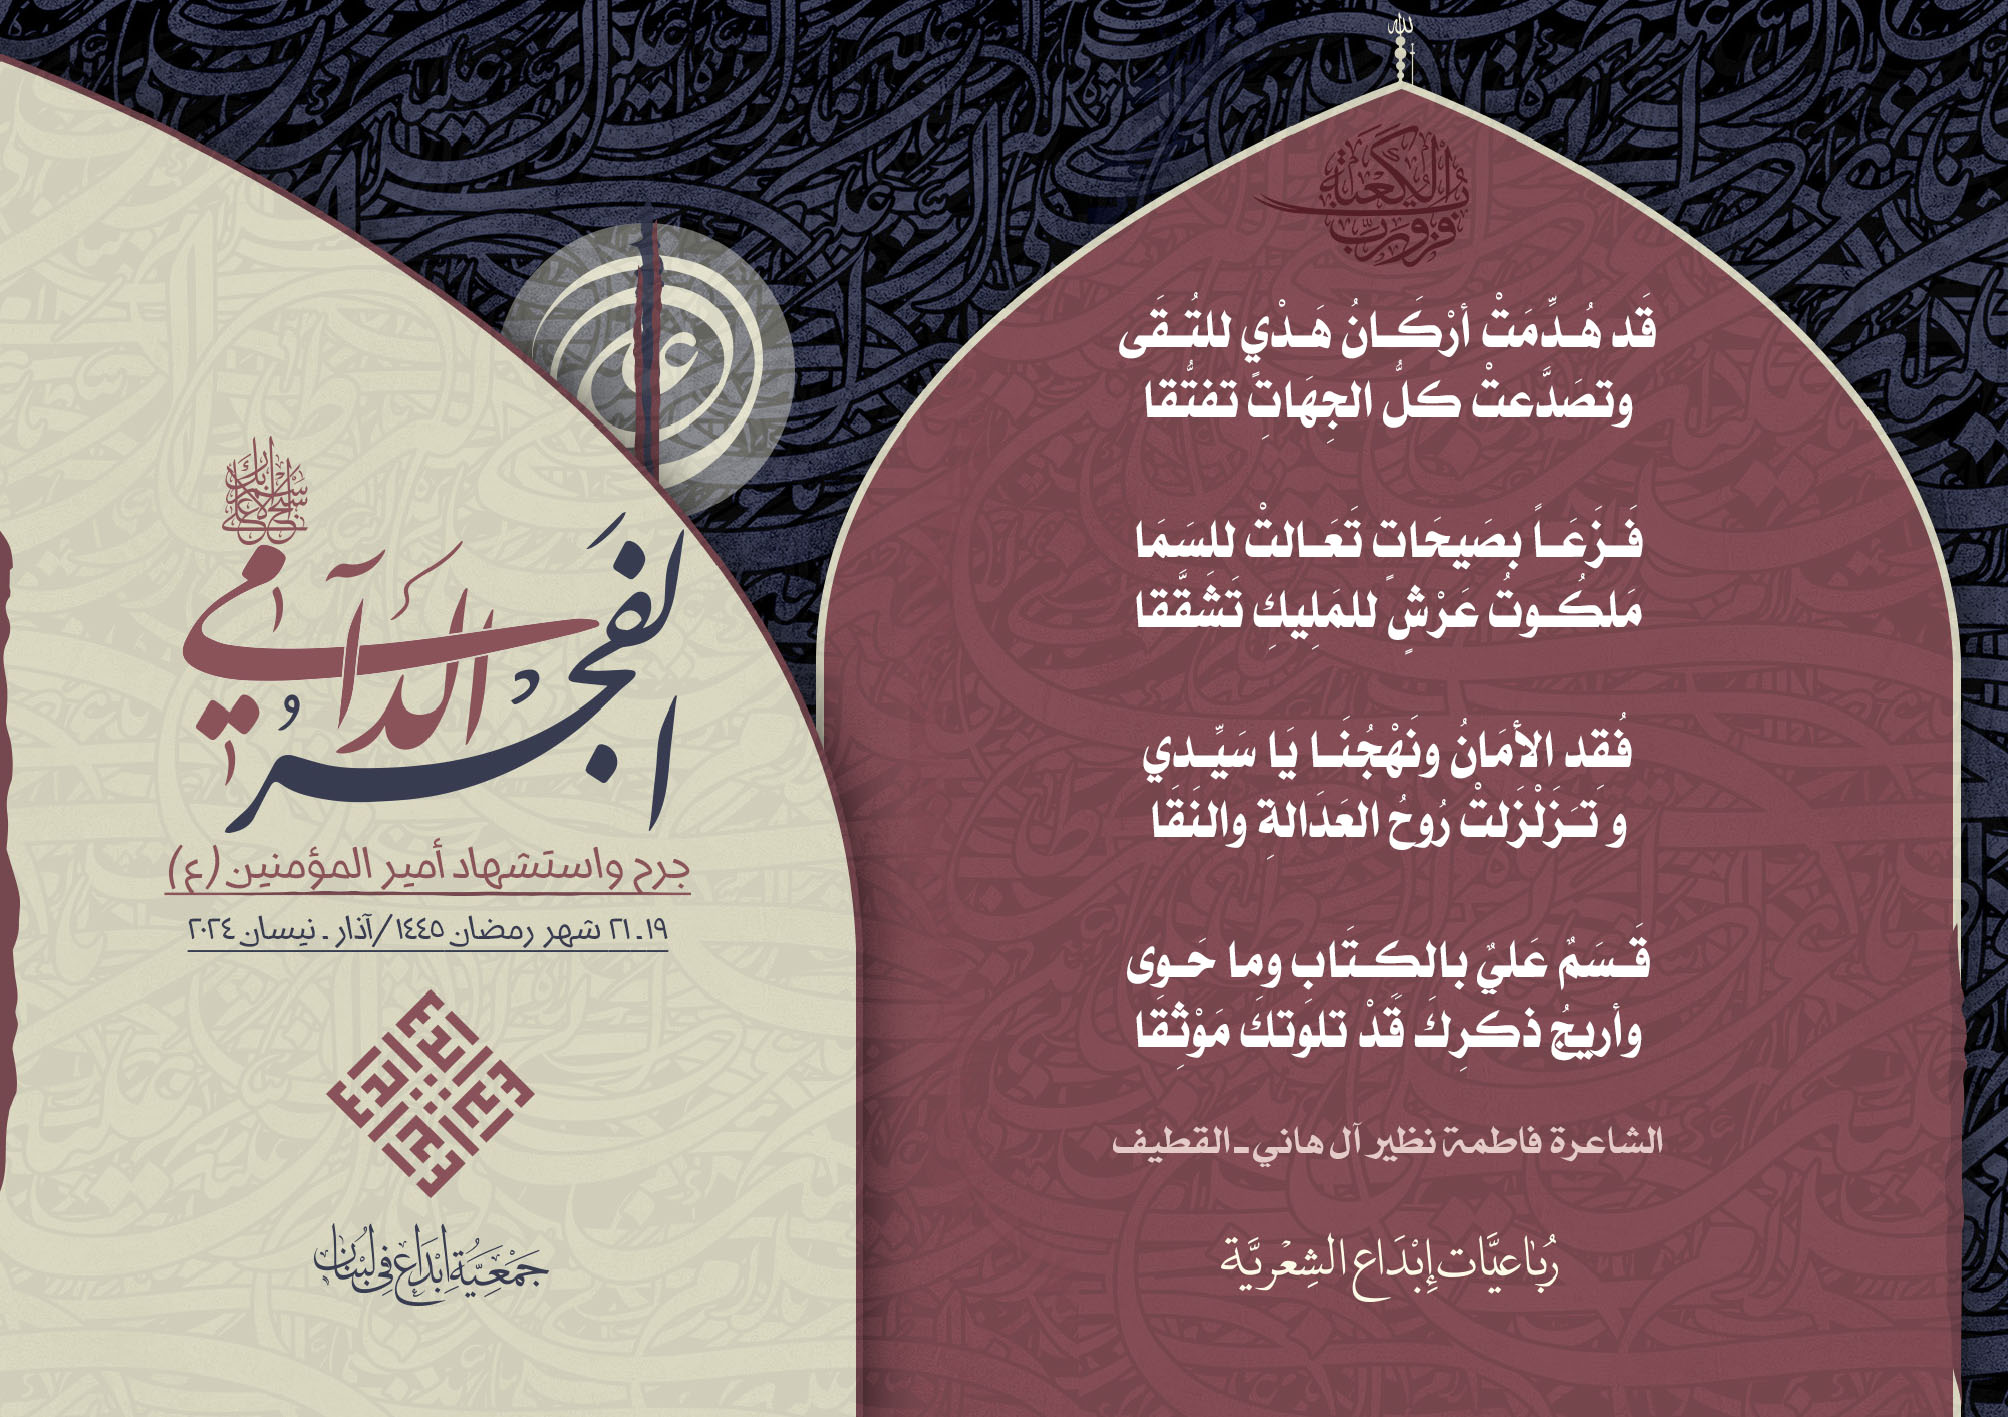 الله
فزت ورب الكعبة
قَد هُـدِّمَتْ أرْكَـانُ هَـدْيٍ للتُـقَى
وتصَدَّعتْ كلُّ الجِهَاتِ تفتُّقا
فَـزَعَـاً بصَيحَاتٍ تَعَـالتْ للسَمَا
مَلكُـوتُ عَرْشٍ للمَلِيكِ تَشَقَّقا
فُقد الأمَانُ ونَهْجُنَـا يَا سَيِّـدي
و تَـزَلْزَلتْ رُوحُ العَدَالةِ والنَقَا
قَـسَمٌ عَليٌ بالكـتَاب وما حَـوى
وأريجُ ذكرِكَ قَدْ تلوَتكَ مَوْثِقَا
الشاعرة فاطمة نظير آل هاني-القطيف
رُبَاعيَّات إِبْدَاع الشِعْريَّة
علي
سَبِّحِ اسْمَ رَبِّكَ الأعلى
الفَجرُ الدَّامي
جرح واستشهاد أمير المؤمنين (ع)
١٩-٢١ شهر رمضان ١٤٤٥/آذار - نيسان ٢٠٢٤
جَمْعِيَّة إبْدَاع في لبْنان